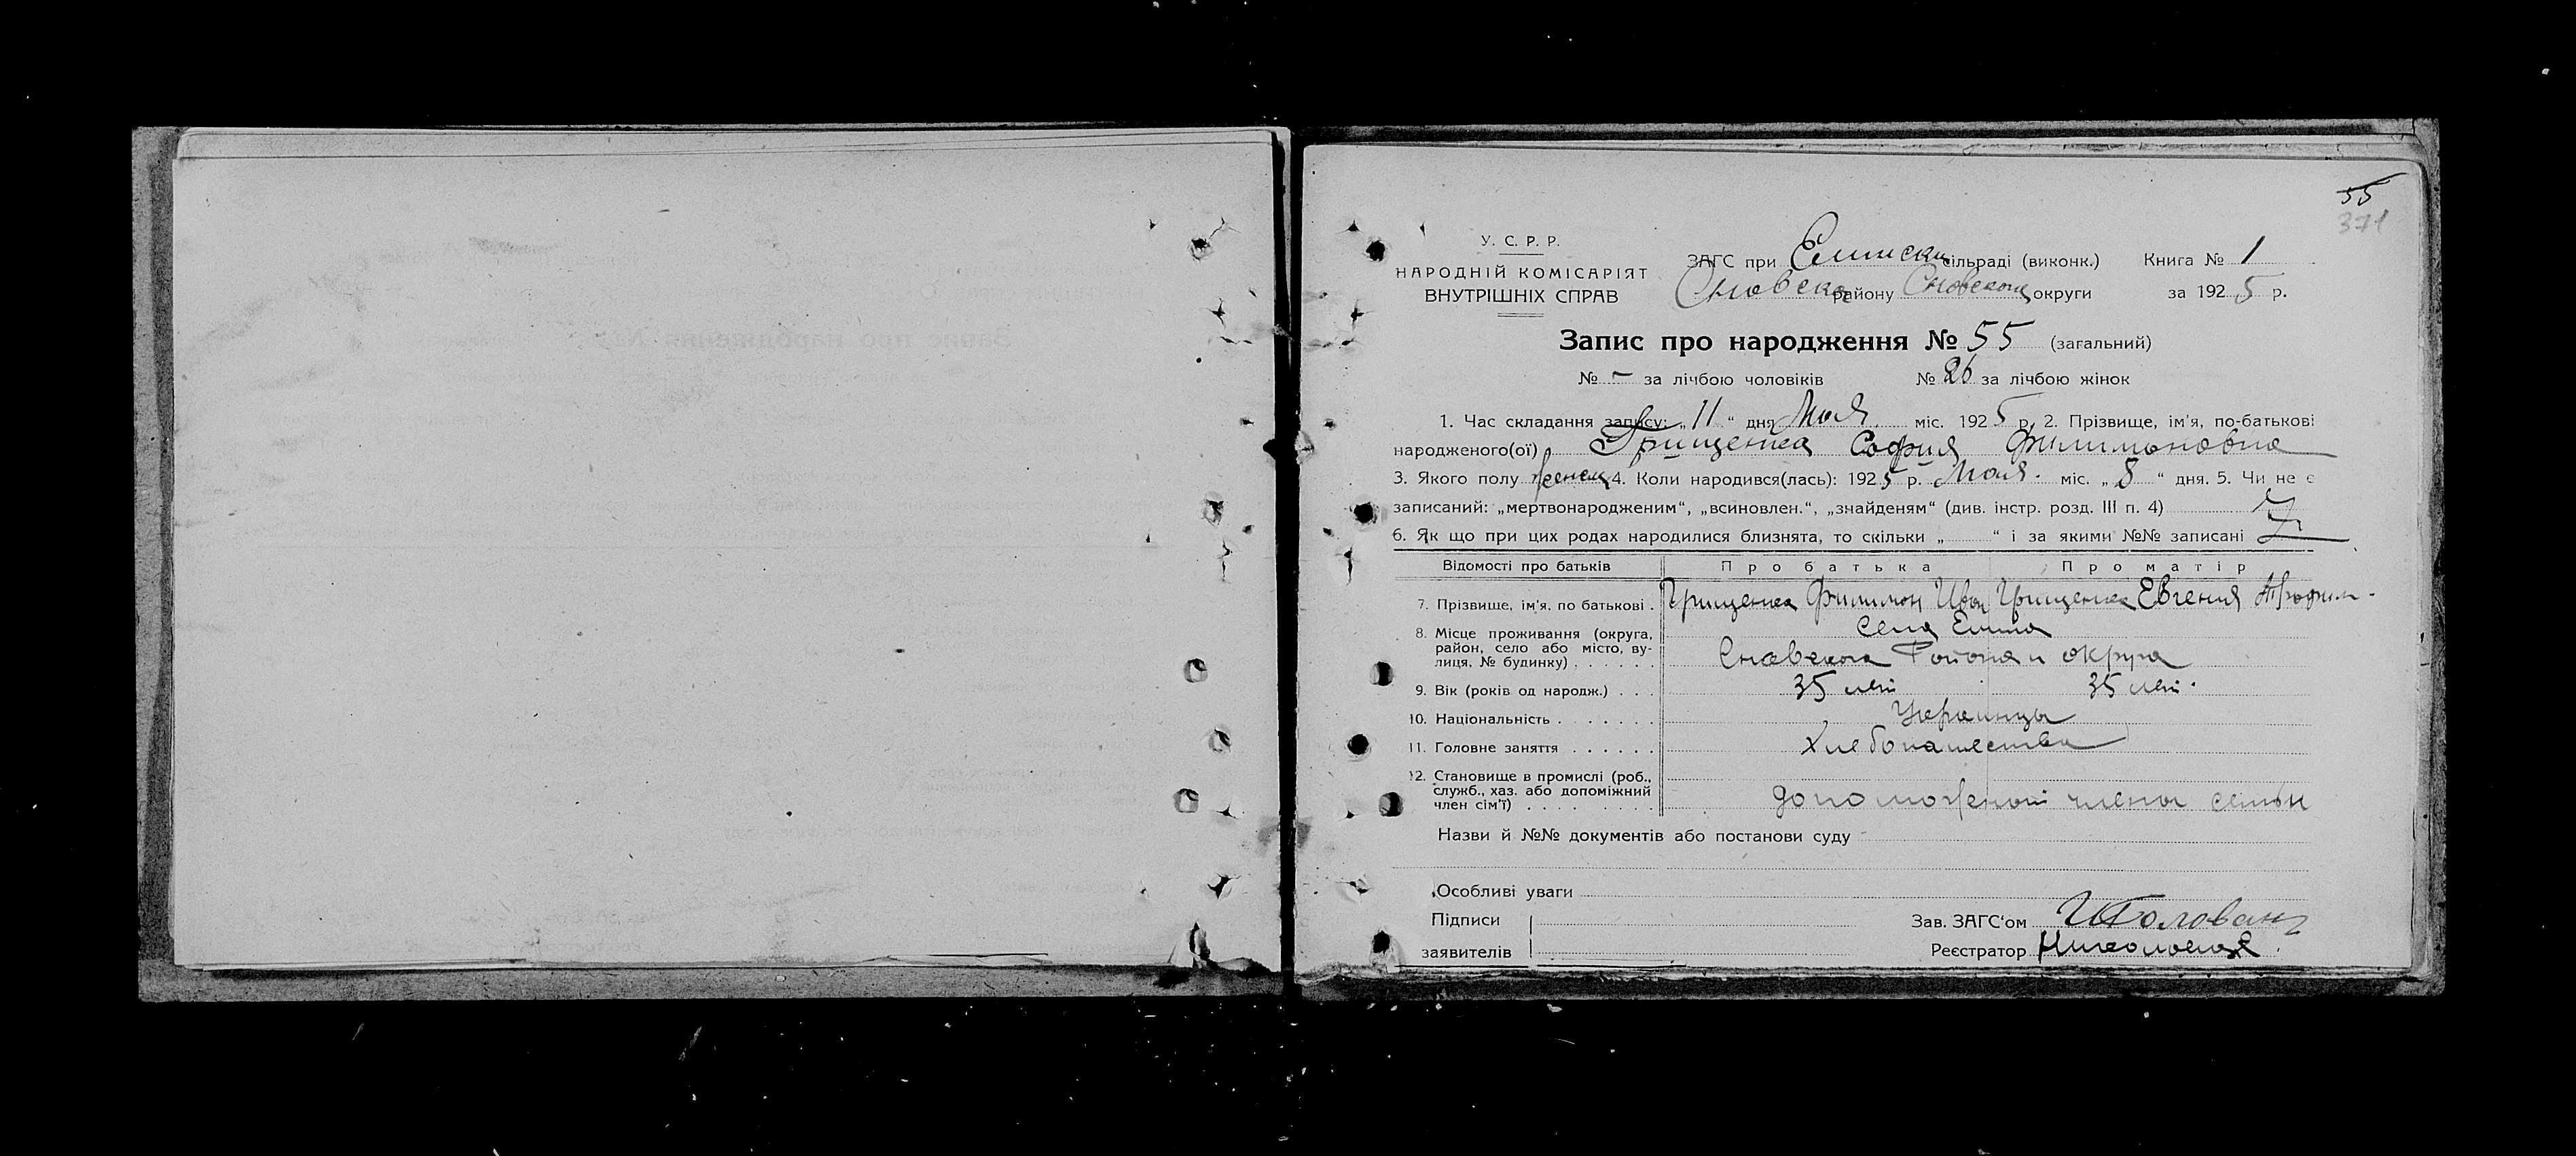 55
371
У. С. Р. Р.
НАРОДНІЙ КОМІСАРІЯТ
ВНУТРІШНІХ СПРАВ
ЗАГС при Елинск сільраді (виконк.) Книга № 1
Сновск району Сновской округи за 1925 р.
Запис про народження № 55 (загальний)
№ - за лічбою чоловіків № 26 за лічбою жінок
1. Час складання запису: „11“ дня Мая міс. 1925 р. 2. Прізвище, ім'я, по-батькові
народженого(ої) Грищенка София Филимоновна
3. Якого полу женск 4. Коли народився(лась): 1925 р. Мая. міс. „8“ дня. 5. Чи не є
записаний: „мертвонародженим“, „всиновлен.“, „знайденям“ (див. інстр. розд. III п. 4)
6. Як що при цих родах народилися близнята, то скільки „ “ і за якими №№ записані
Відомості про батьків Про батька Про матір
7. Прізвище, ім'я, по батькові . Грищенка Филимон Иван Грищенка Евгения Трофим-
8. Місце проживання (округа, район, село або місто, ву-лиця, № будинку) . . . . . . села Елина
Сновского Района и округа
9. Вік (років од народж.) . . . 35 лет 35 лет.
10. Національність . . . . . . . Украинцы
11. Головне заняття . . . . . . Хлебопашества
12. Становище в промислі (роб., служб., хаз. або допоміжний член сім'ї) . . . . . . . . допоможеной члены семьи
Назви й №№ документів або постанови суду
Особливі уваги
Підписи Зав. ЗАГС'ом
заявителів Реєстратор